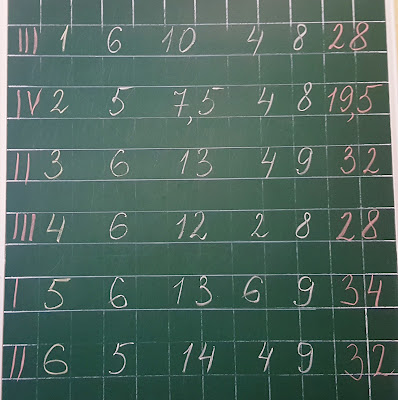 III 1 6 10 4 8 28
IV 2 5 7,5 4 8 19,5
II 3 6 13 4 9 32
III 4 6 12 2 8 28
I 5 6 13 6 9 34
II 6 5 14 4 9 32